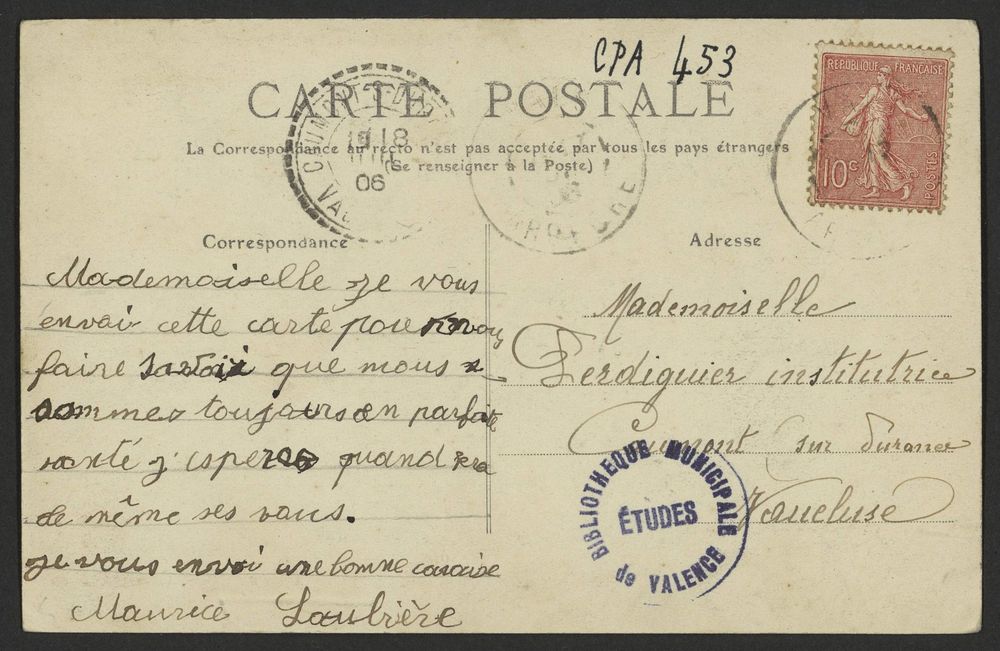 CPA 453
CARTE POSTALE
REPUBLIQUE FRANÇAISE
10c
POSTES
La Correspondance au recto n'est pas acceptée par tous les pays étrangers
(Se renseigner à la Poste)
18
06
Correspondance
Mademoiselle je vous
envoi cette carte pour vous
faire que nous
sommes toujours en parfaite
santé j'espere quand sera
de même ses vous.
je vous envoi une bonne
Maurice Laubière
Adresse
Mademoiselle
Perdiguier institutrice
Caumont sur Durance
Vaucluse
BIBLIOTHEQUE MUNICIPALE
ÉTUDES
de VALENCE